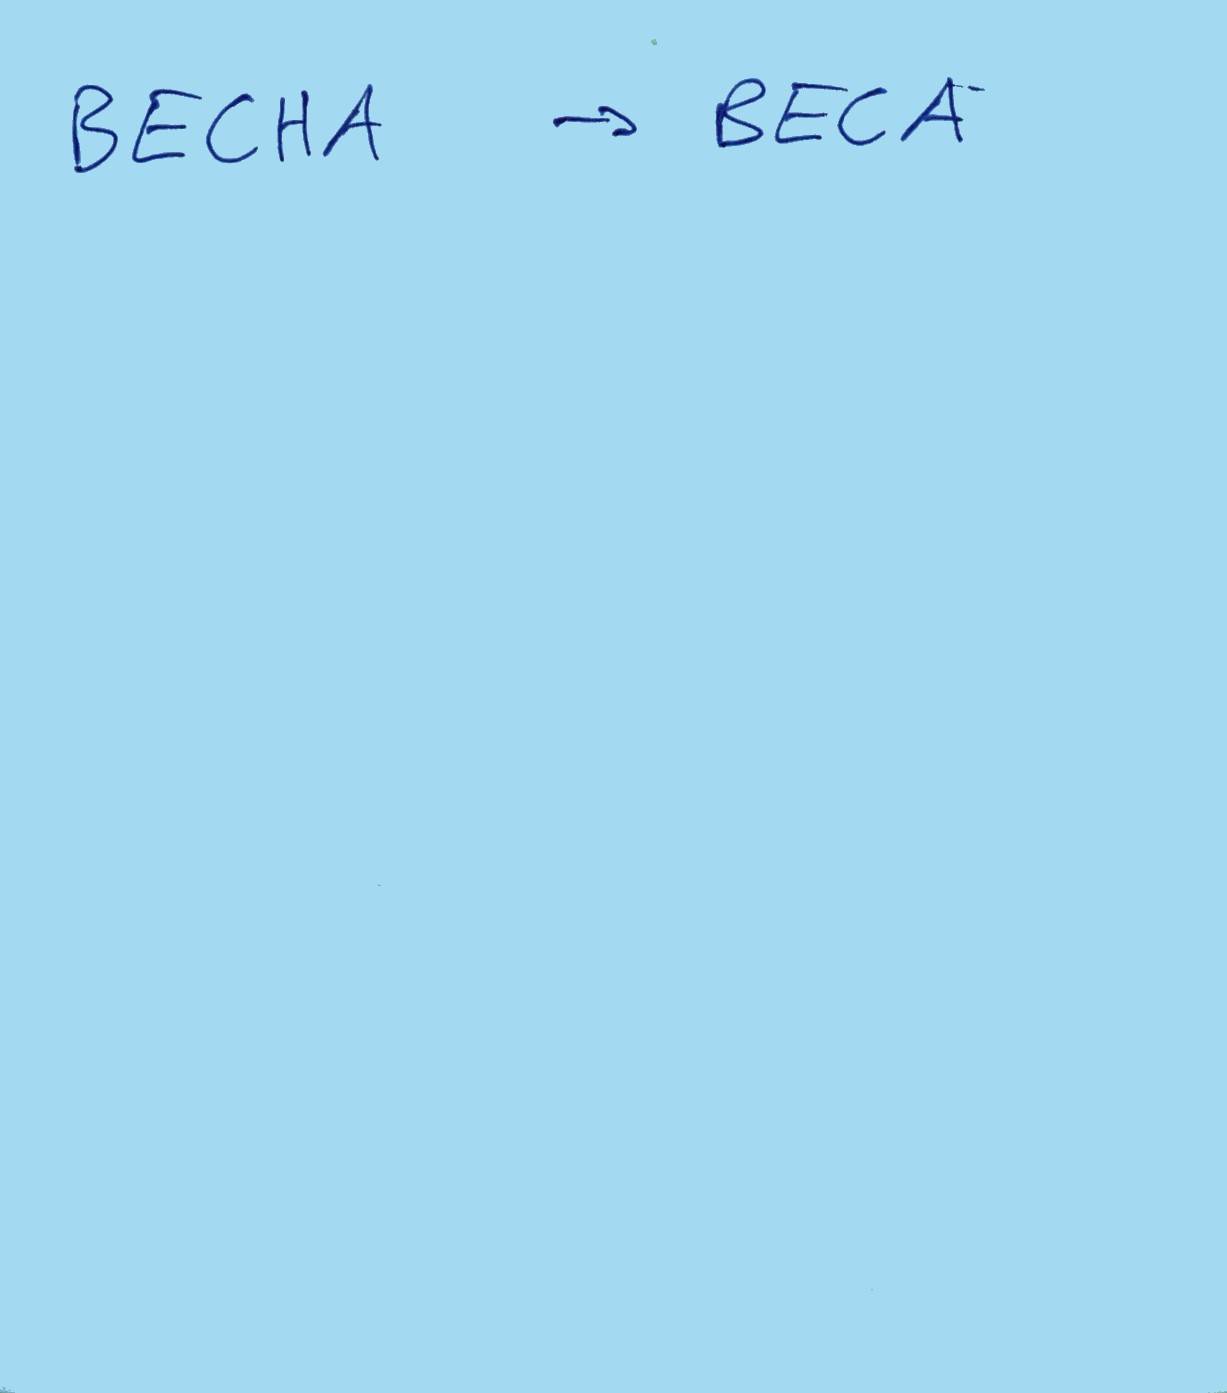 ВЕСНА → ВЕСА